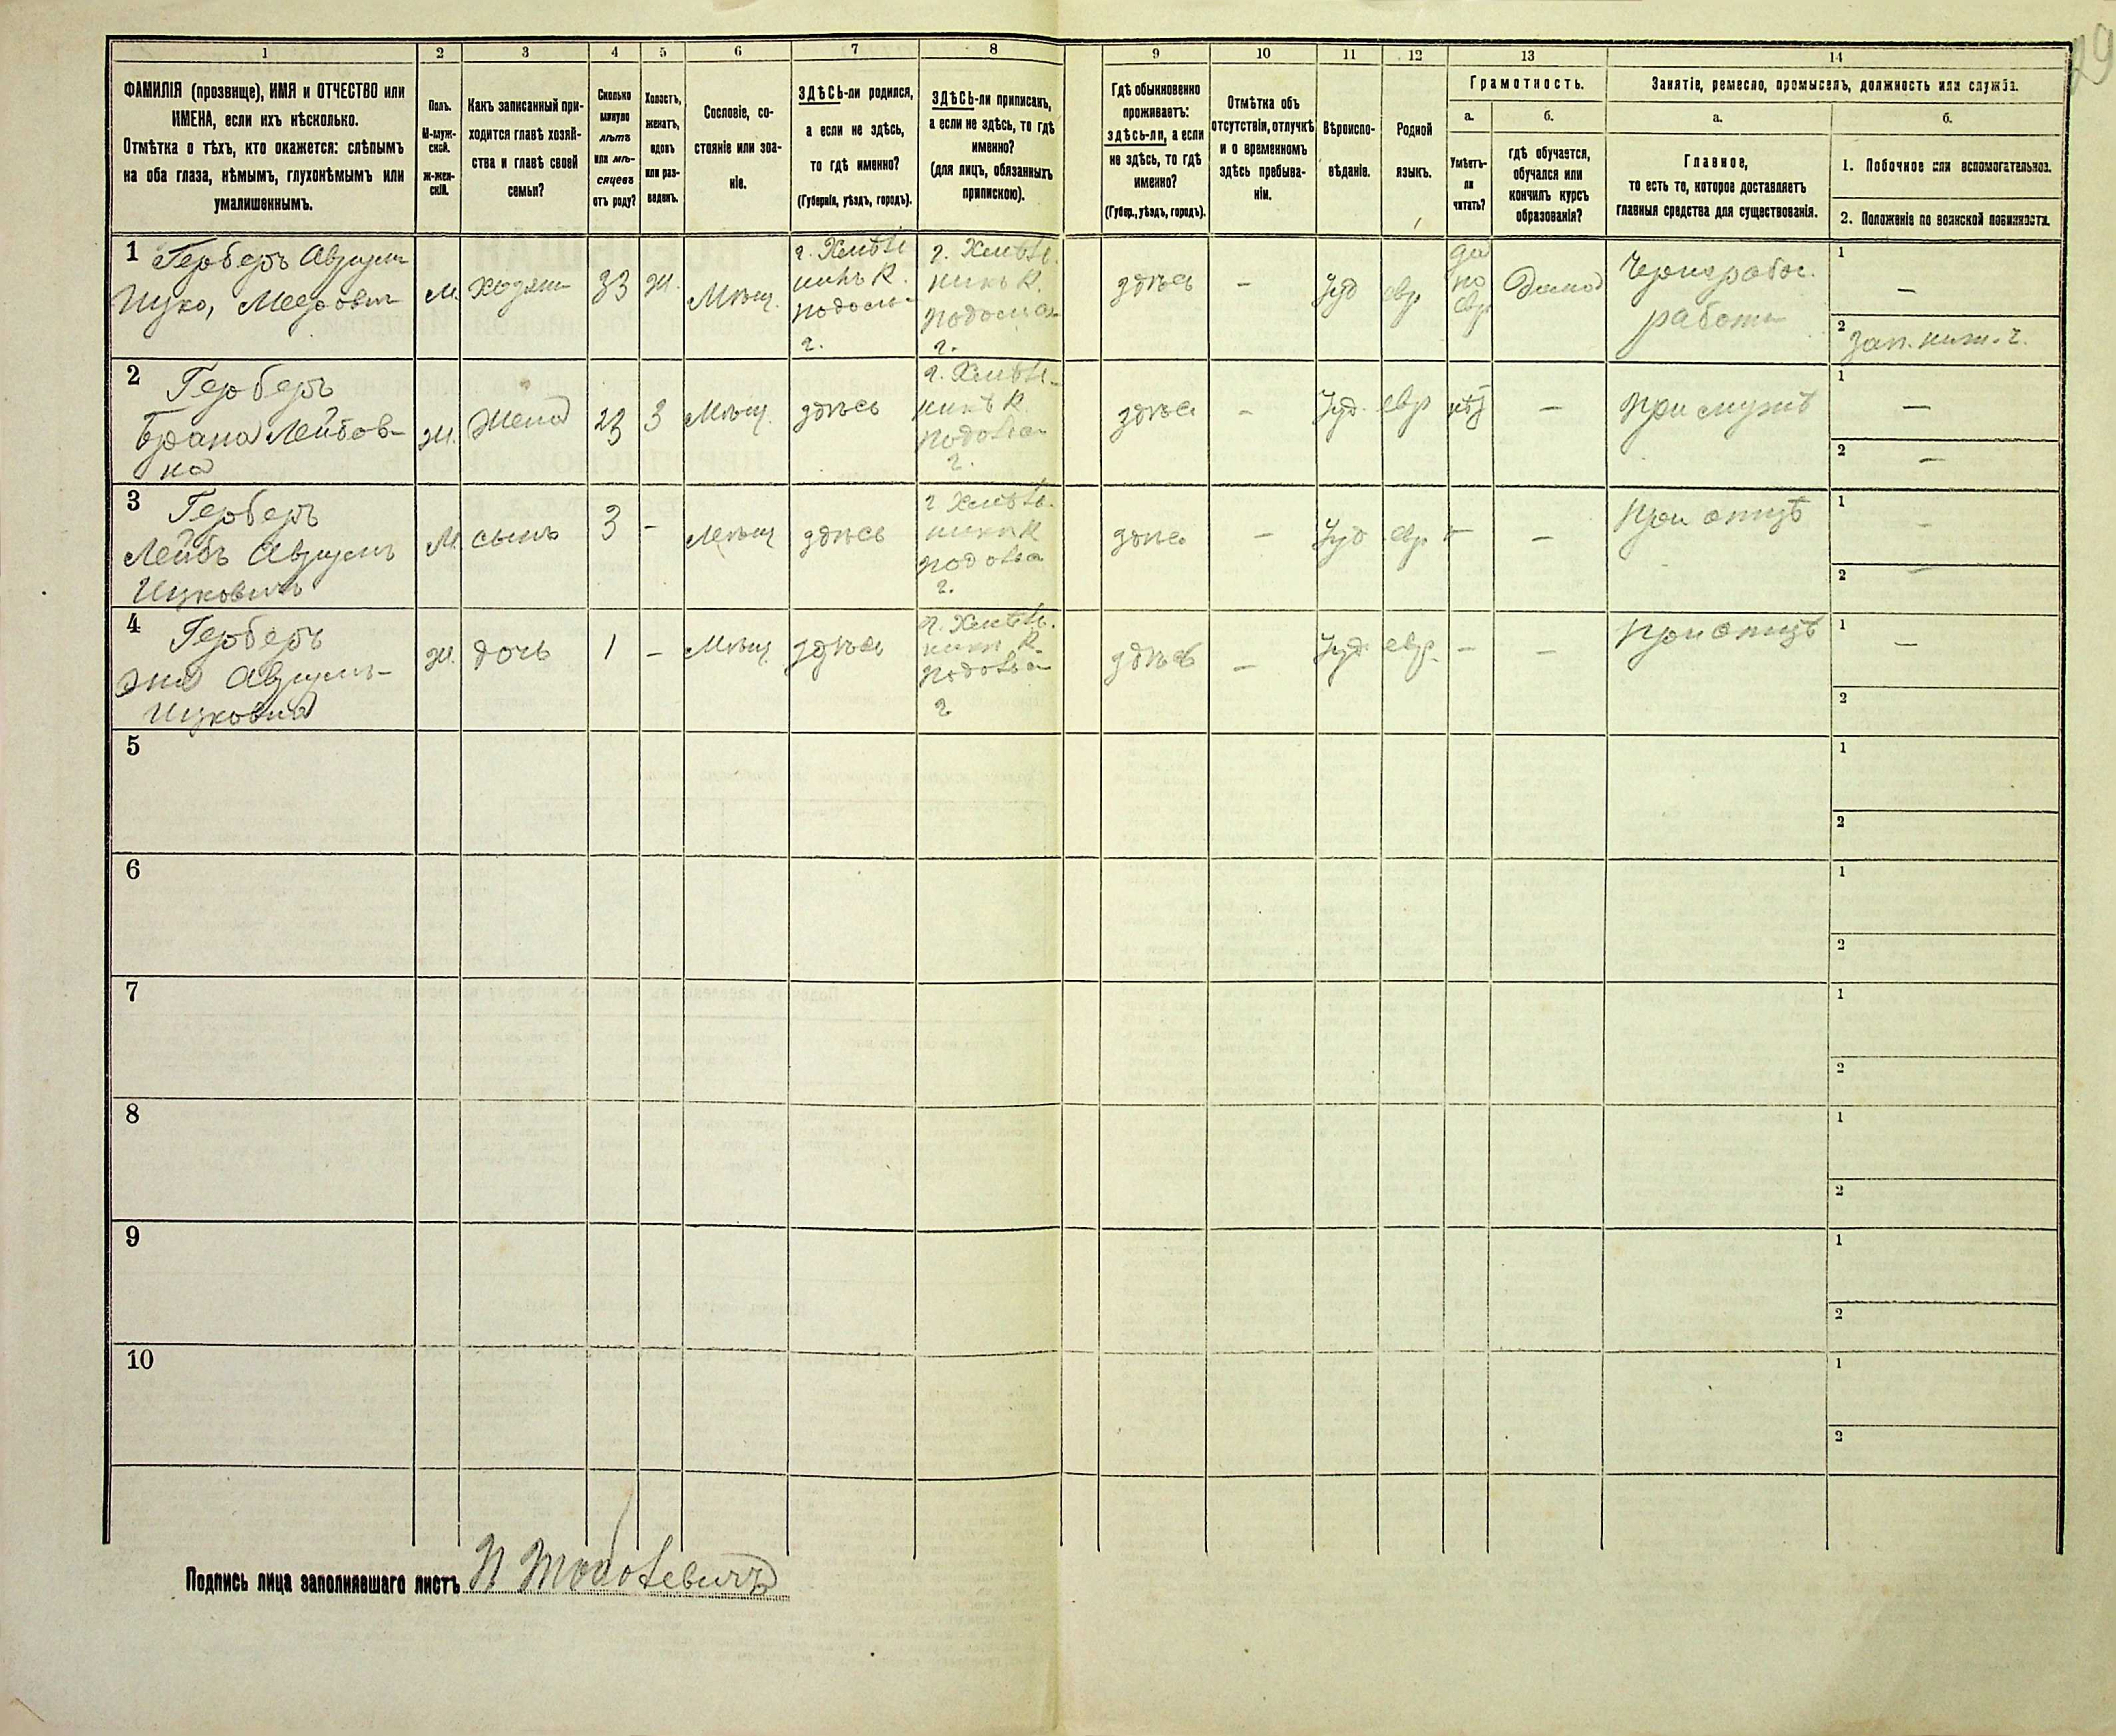 1
2
3
4
5
6
7
8
9
10
11
12
13
14
ФАМИЛІЯ (прозвище), ИМЯ и ОТЧЕСТВО или
ИМЕНА, если ихъ нѣсколько.
Отмѣтка о тѣхъ, кто окажется: слѣпымъ
на оба глаза, нѣмымъ, глухонѣмымъ или
умалишеннымъ.
Полъ.
М-муж-
ской.
Ж-жен-
скій.
Какъ записанный при-
ходится главѣ хозяй-
ства и главѣ своей
семьи?
Сколько
минуло
лѣтъ
или мѣ-
сяцевъ
отъ роду?
Холостъ,
женатъ,
вдовъ
или раз-
веденъ.
Сословіе, со-
стояніе или зва-
ніе.
ЗДѢСЬ-ли родился,
а если не здѣсь,
то гдѣ именно?
(Губернія, уѣздъ, городъ).
ЗДѢСЬ-ли приписанъ,
а если не здѣсь, то гдѣ
именно?
(для лицъ, обязанныхъ
припискою).
Гдѣ обыкновенно
проживаетъ:
здѣсь-ли, а если
не здѣсь, то гдѣ
именно?
(Губер., уѣздъ, городъ).
Отмѣтка объ
отсутствіи, отлучкѣ
и о временномъ
здѣсь пребыва-
ніи.
Вѣроиспо-
вѣданіе.
Родной
языкъ.
Грамотность.
а.
Умѣетъ-
ли
читать?
б.
гдѣ обучается,
обучался или
кончилъ курсъ
образованія?
Занятіе, ремесло, промыселъ, должность или служба.
а.
Главное,
то есть то, которое доставляетъ
главныя средства для существованія.
б.
1. Побочное или вспомогательное.
2. Положеніе по воинской повинности.
1 Герберъ Аврумъ
Ицко, Мееровичъ
М.
хозяин
33
Ж.
Мѣщ.
г. Хмѣль
никъ К.
подоль
г.
г. Хмѣль.
никъ К.
г.
здѣсь
–
Іуд
евр
да
по
евр
Дома
Чернорабоч.
работы
1
–
2
Зап. ниж. ч.
2 Герберъ
Брана Лейбов-
на
Ж.
Жена
23
З
Мѣщ.
здѣсь
г. Хмѣль-
никъ К.
г.
здѣсь
–
Іуд.
евр
нѣт
–
при мужѣ
1
–
2
–
3 Герберъ
Лейбъ Аврумъ
Ицковичъ
М
сынъ
3
–
Мѣщ
здѣсь
г Хмѣль.
никъ К
г.
здѣсь
–
Іуд
евр
–
–
при отцѣ
1
–
2
–
4 Герберъ
Аврумъ-
Ицковна
Ж.
дочь
1
–
Мѣщ
здѣсь
г. Хмѣль.
никъ К.
г
здѣсь
–
Іуд
евр.
–
–
при отцѣ
1
–
2
5
1
2
6
1
2
7
1
2
8
1
2
9
1
2
10
1
2
Подпись лица заполнявшаго листъ